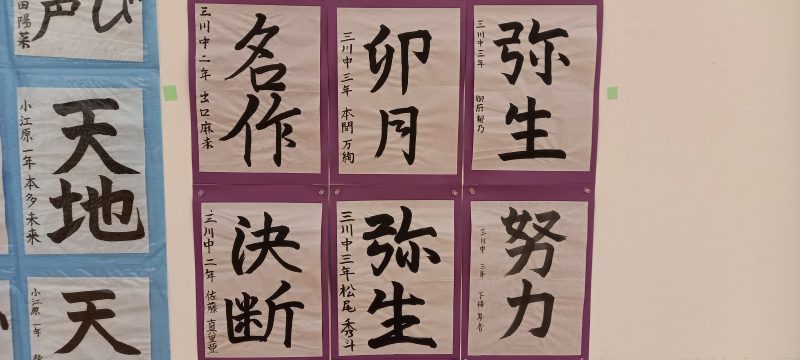 び
声
田陽菜
天地
小江原一年本多未来
天
小江原一年
名作
三川中二年 出口麻未
卯月
三川中三年 本間万絢
弥生
三川中三年
決断
三川中二年 佐藤真里亜
弥生
三川中三年松尾秀斗
努力
三川中 三年